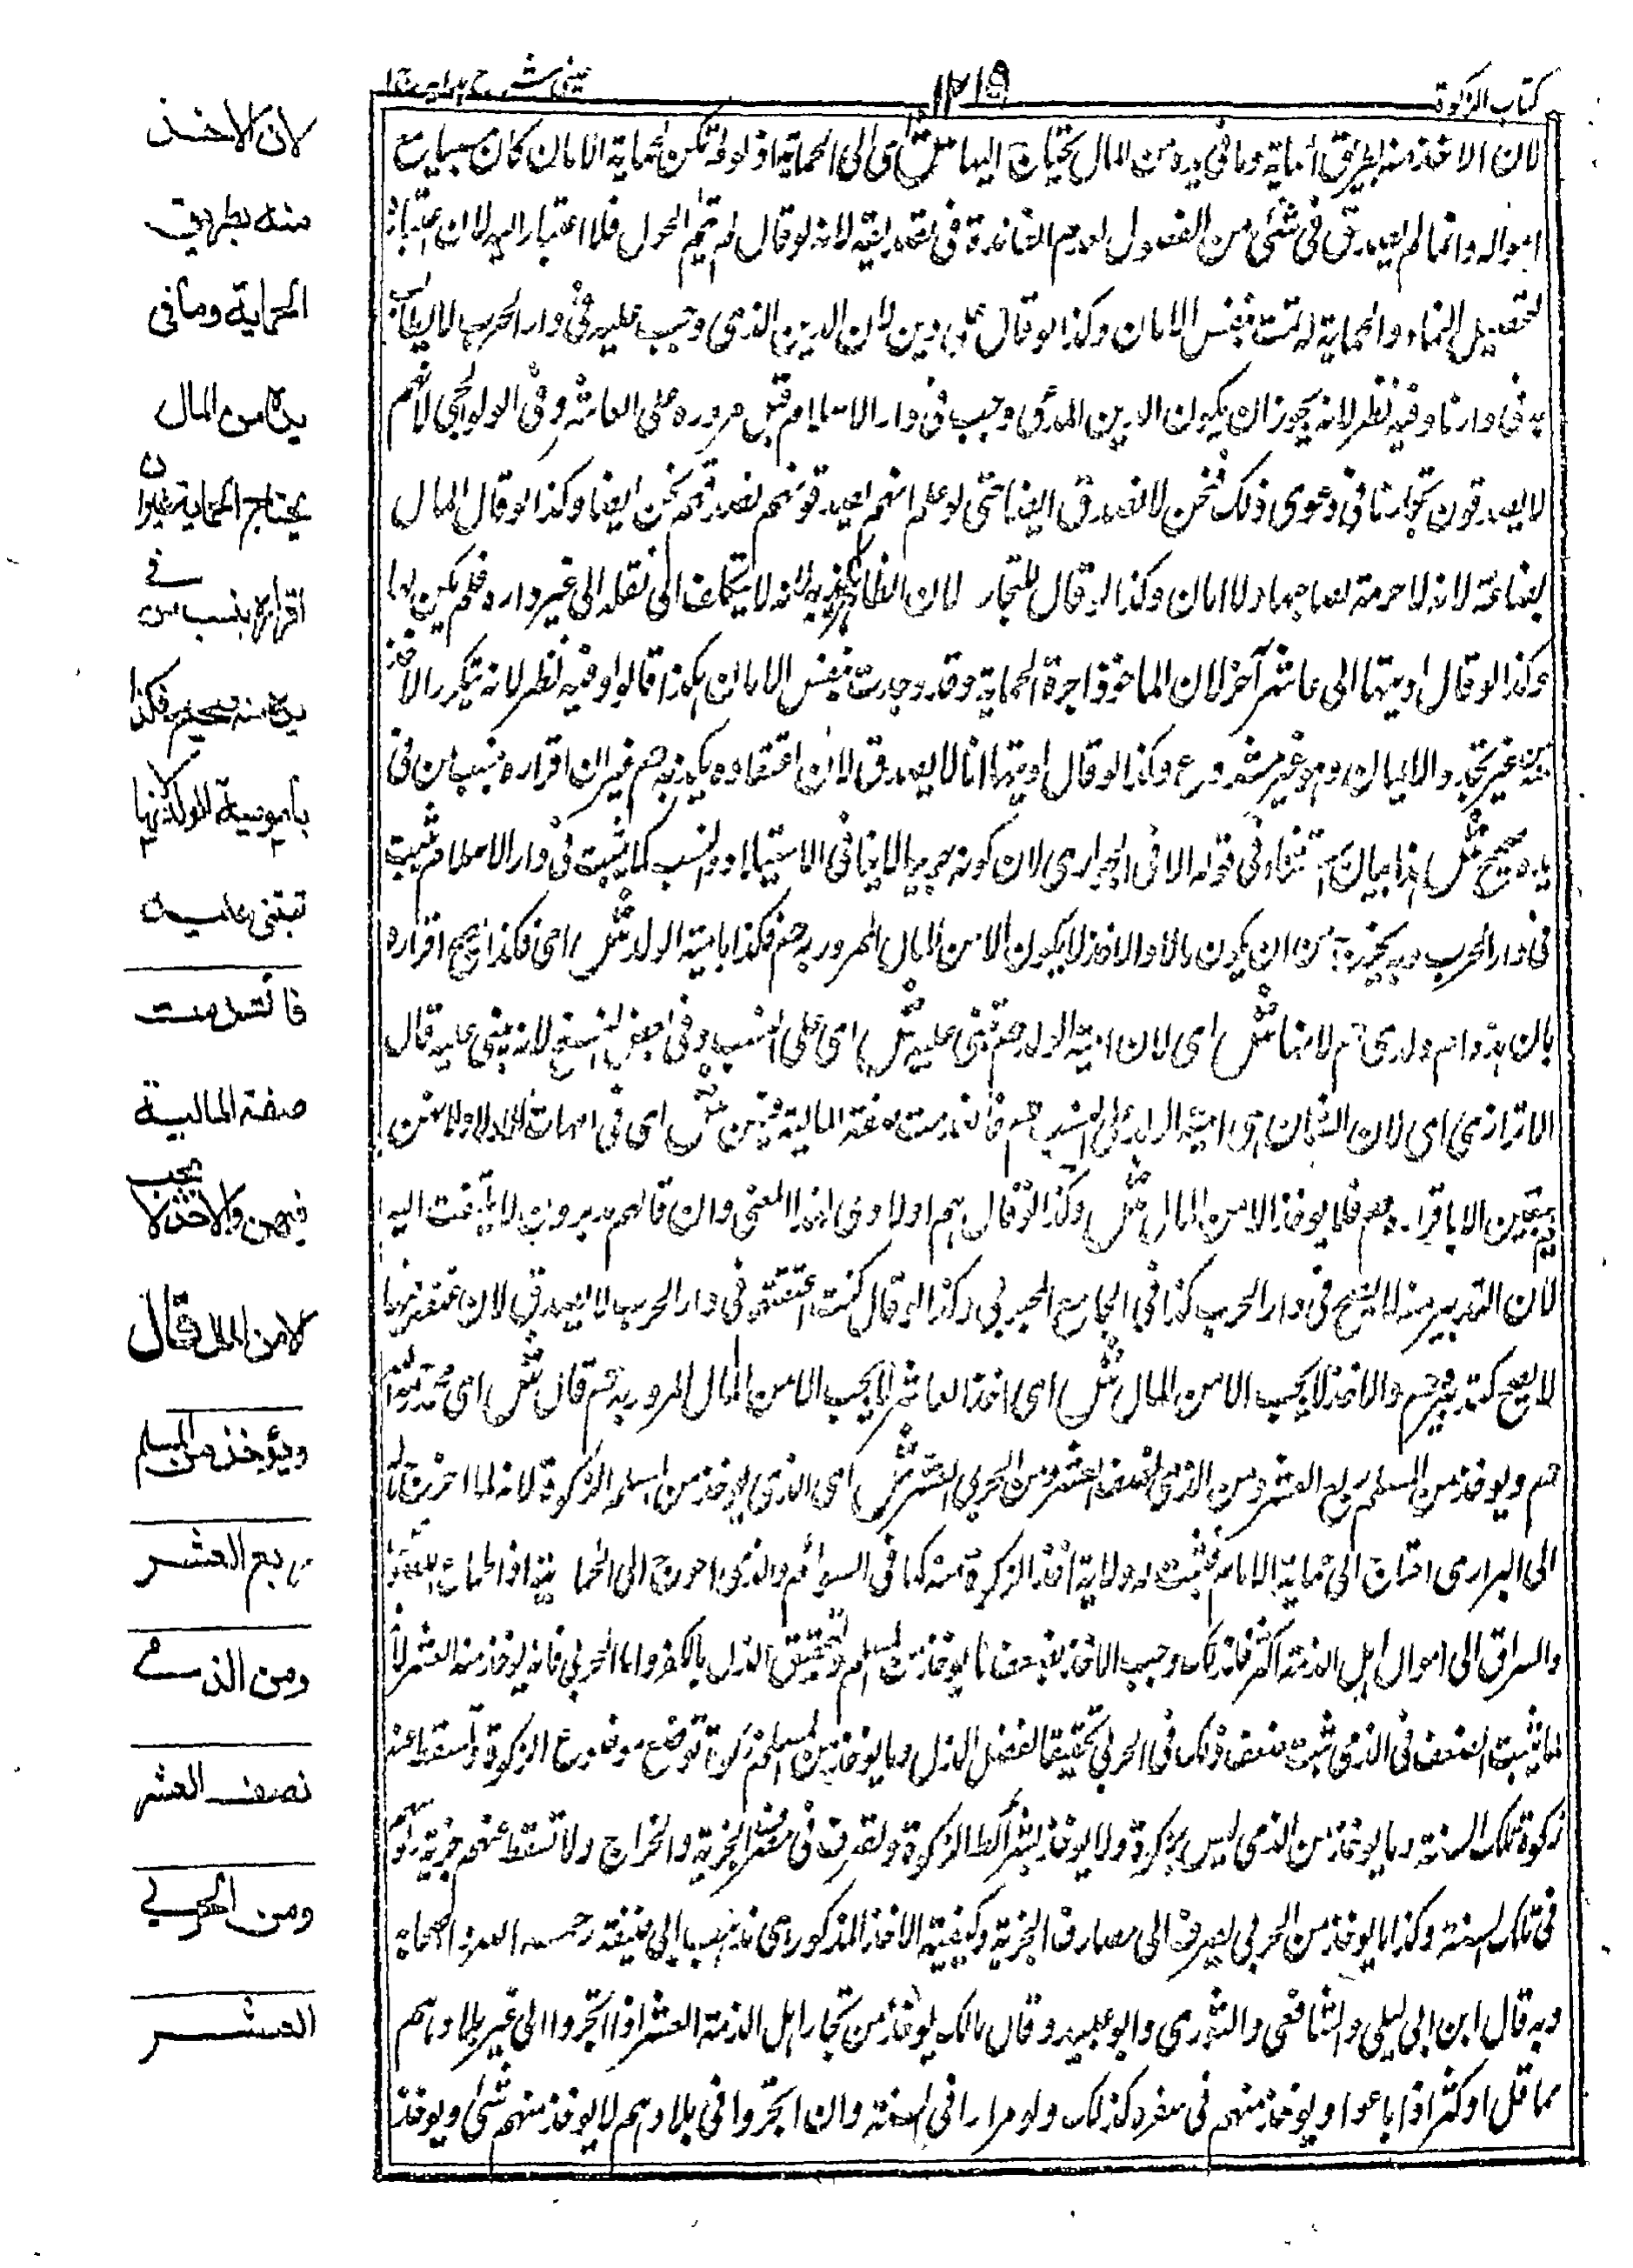 كتاب الزكوة
١٢١٩
عينى شرح هدايه ج ١
لان الاخذ منه بطريق الحماية وما فى يده من المال يحتاج اليها ش اى الى الحماية اذ لو لم تكن حماية الامان كان سبيا مع
امواله وانما لم يصدق فى شئ من الفصول لعدم الفائدة فى تصديقه لانه لو قال لم يتم الحول فلا اعتبار اليه لان اعتباره
لتحصيل النماء والحماية له تمت بنفس الامان وكذا لو قال على دين لان الدين الذى وجب عليه فى دار الحرب لا يطالب
به فى دارنا وفيه نظر لانه يجوز ان يكون الدين الذى وجب فى دار الاسلام قبل مروره على العاشر وفى الولوالجى لانهم
لا يصدقون تجارنا فى دعوى ذلك فنحن لا نصدق ايضا حتى لو علم انهم يصدقونهم نصدقهم نحن ايضا وكذا لو قال المال
بضاعة لانه لا حرمة لصاحبها ولا امان وكذا لو قال للتجار لان الظاهر يكذبه لانه لا يتكلف الى نقله الى غير داره فلم يكن لها
وكذا لو قال اديتها الى عاشر آخر لان الماخوذ اجرة الحماية وقد وجدت بنفس الامان هكذا قالوا وفيه نظر لانه يتكرر الاخذ
منه من غير تجدد الامان وهو غير مشروع وكذا لو قال اديتها انا لا يصدق لان اعتقاده يكذبه م غير ان اقراره بنسب من فى
يده صحيح ش هذا بيان استثناء فى قوله الا فى الجوارى لان كونه حربيا لا ينافى الاستيلاد والنسب كما يثبت فى دار الاسلام يثبت
فى دار الحرب وبه يخرج من ان يكون مالا والاخذ لا يكون الا من المال الممرور به م فكذا بامية الولد ش اى فكذا يصح اقراره
بان هذه ام ولدى م لانها ش اى لان امية الولد م تبتنى عليه ش اى على النسب وفى بعض النسخ لانه يبتنى عليه قال
الاترازى اى لان الشان ان امية الولد على النسب م فانعدمت صفة المالية فيهن ش اى فى امهات الاولاد ولا
يعتقن الا باقراره م فلا يوخذ الا من المال ش وكذا لو قال هم اولادى لهذا المعنى وان قال هم مدبرون لا يلتفت اليه
لان التدبير منه لا يصح فى دار الحرب كذا فى الجامع المحبوبى وكذا لو قال كنت اعتقتهم فى دار الحرب لا يصدق لان عتقه فيها
لا يصح كتدبيره م والاخذ لا يجب الا من المال ش اى اخذ العاشر لا يجب الا من المال الممرور به م قال ش اى محمد
م ويوخذ من المسلم ربع العشر ومن الذمى نصف العشر ومن الحربى العشر ش اى الذى يوخذ من المسلم الزكوة لانه لما اخرج ماله
الى البرارى احتاج الى حماية الامام فيثبت له ولاية اخذ الزكوة منه كما فى السوائم والذمى احوج الى الحماية اذ اطماع اللصوص
والسراق الى اموال اهل الذمة اكثر فلذلك وجب الاخذ بضعف ما يوخذ من المسلم لتحقيق الذل بالكفر واما الحربى فانه يوخذ منه العشر لانه
لما ثبت الضعف فى الذمى ثبت ضعف ذلك فى الحربى تحقيقا لفضل الذل وما يوخذ من المسلم زكوة توضع موضع الزكوة وتسقط عنه
زكوة تلك السنة وما يوخذ من الذمى ليس بزكوة ولا يوخذ بشرائط الزكوة ويصرف فى مصرف الجزية والخراج ولا تسقط عنهم جزية رؤسهم
فى تلك السنة وكذا ما يوخذ من الحربى يصرف الى مصارف الجزية وكيفية الاخذ المذكور هى مذهب ابى حنيفة رحمه الله واصحابه
وبه قال ابن ابى ليلى والشافعى والثورى وابو عبيد وقال مالك يوخذ من تجار اهل الذمة العشر اذا اتجروا الى غير بلادهم
مما قل او كثر اذا باعوا ويوخذ منهم فى سفره كذلك ولو مرارا فى السنة وان اتجروا فى بلادهم لا يوخذ منهم شئ ويوخذ
لان الاخذ
منه بطريق
الحماية وما فى
يده من المال
يحتاج الحماية غير ان
اقراره بنسب من فى
يده منه صحيح فكذا
بامومية الولد لانها
تبتنى عليه
فانعدمت
صفة المالية
فيهن والاخذ لا يجب
الا من المال قال
ويؤخذ من المسلم
ربع العشر
ومن الذمى
نصف العشر
ومن الحربى
العشر